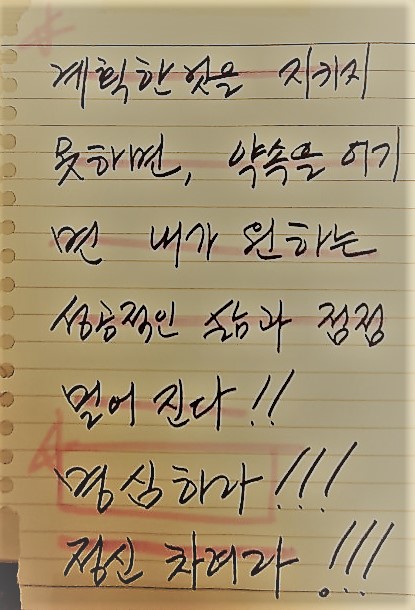 계획한 것을 지키지
못하면, 약속을 어기
면 내가 원하는
성공적인 삶과 점점
멀어 진다!!
명심하라!!!
정신 차려라!!!